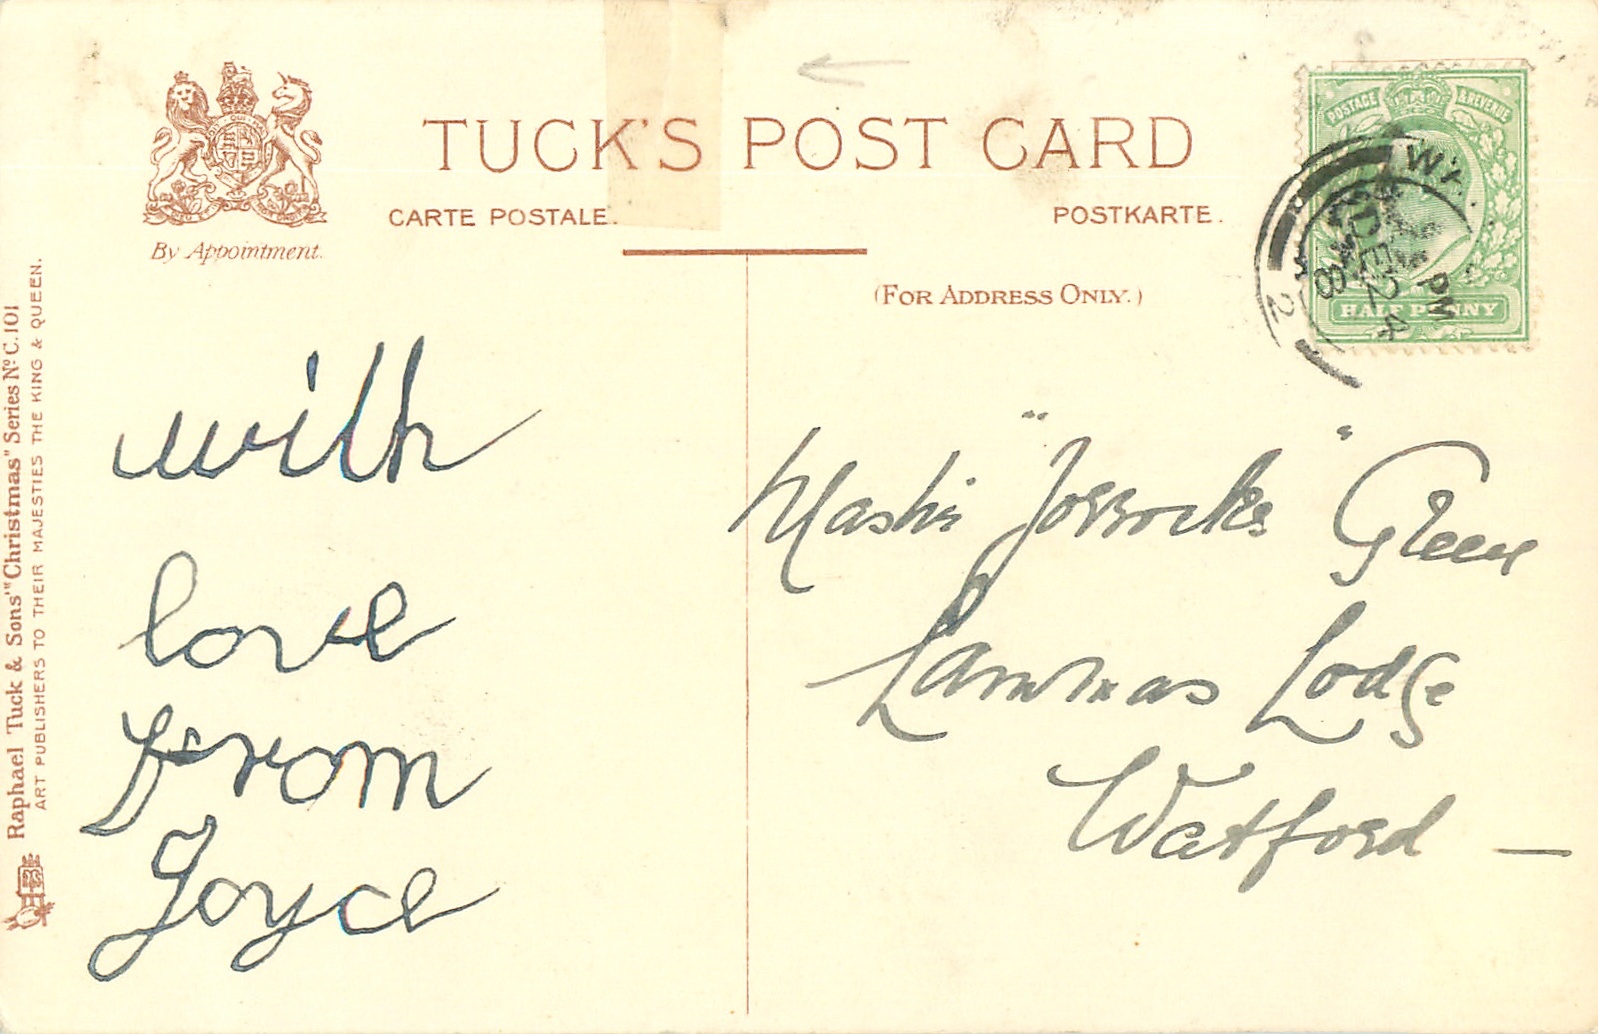 TUCK'S POST CARD
CARTE POSTALE.
POSTKARTE.
By Appointment.
(FOR ADDRESS ONLY.)
POSTAGE & REVENUE
HALF PENNY
PM
DE 24
2
Raphael Tuck & Sons' "Christmas" Series Nº C. 101
ART PUBLISHERS TO THEIR MAJESTIES THE KING & QUEEN.
with
love
from
Joyce
"Jorrocks" Green
Lammas Lodge
Watford —